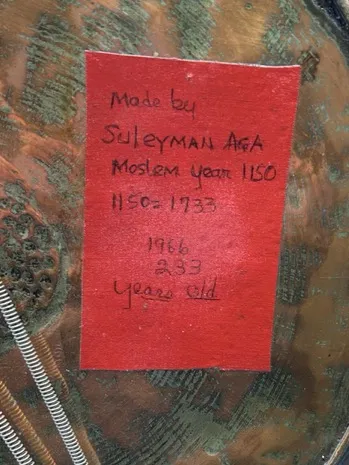 Made by
Suleyman AGA
Moslem year 1150
1150=1733
1966
233
years old